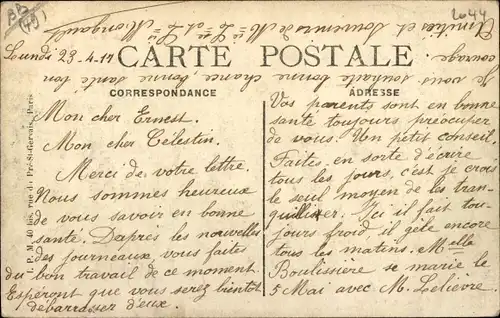 2044
Lundi 23-4-17
CARTE POSTALE
CORRESPONDANCE
ADRESSE
Mon cher Ernest.
Mon cher Célestin.
Merci de votre lettre.
Nous sommes heureux
de vous savoir en bonne
santé. D'après les nouvelles
des journeaux vous faites
du bon travail de ce moment.
Espéront que vous serez bientôt
débarrasser d'eux.
Vos parents sont en bonne
santé toujours préoccuper
de vous. Un petit conseil,
Faites en sorte d'écrire
tous les jours, c'est je crois
le seul moyen de les tran-
quilliser. Ici il fait tou-
jours froid il gèle encore
tous les matins. Melle
Boulissière se marie le
5 Mai avec M. Lelièvre.
Je vous souhaite bonne chance bonne santé bon
courage.
Amitiés et souvenirs de
M. 40 bis, rue du Pré-St-Gervais, Paris